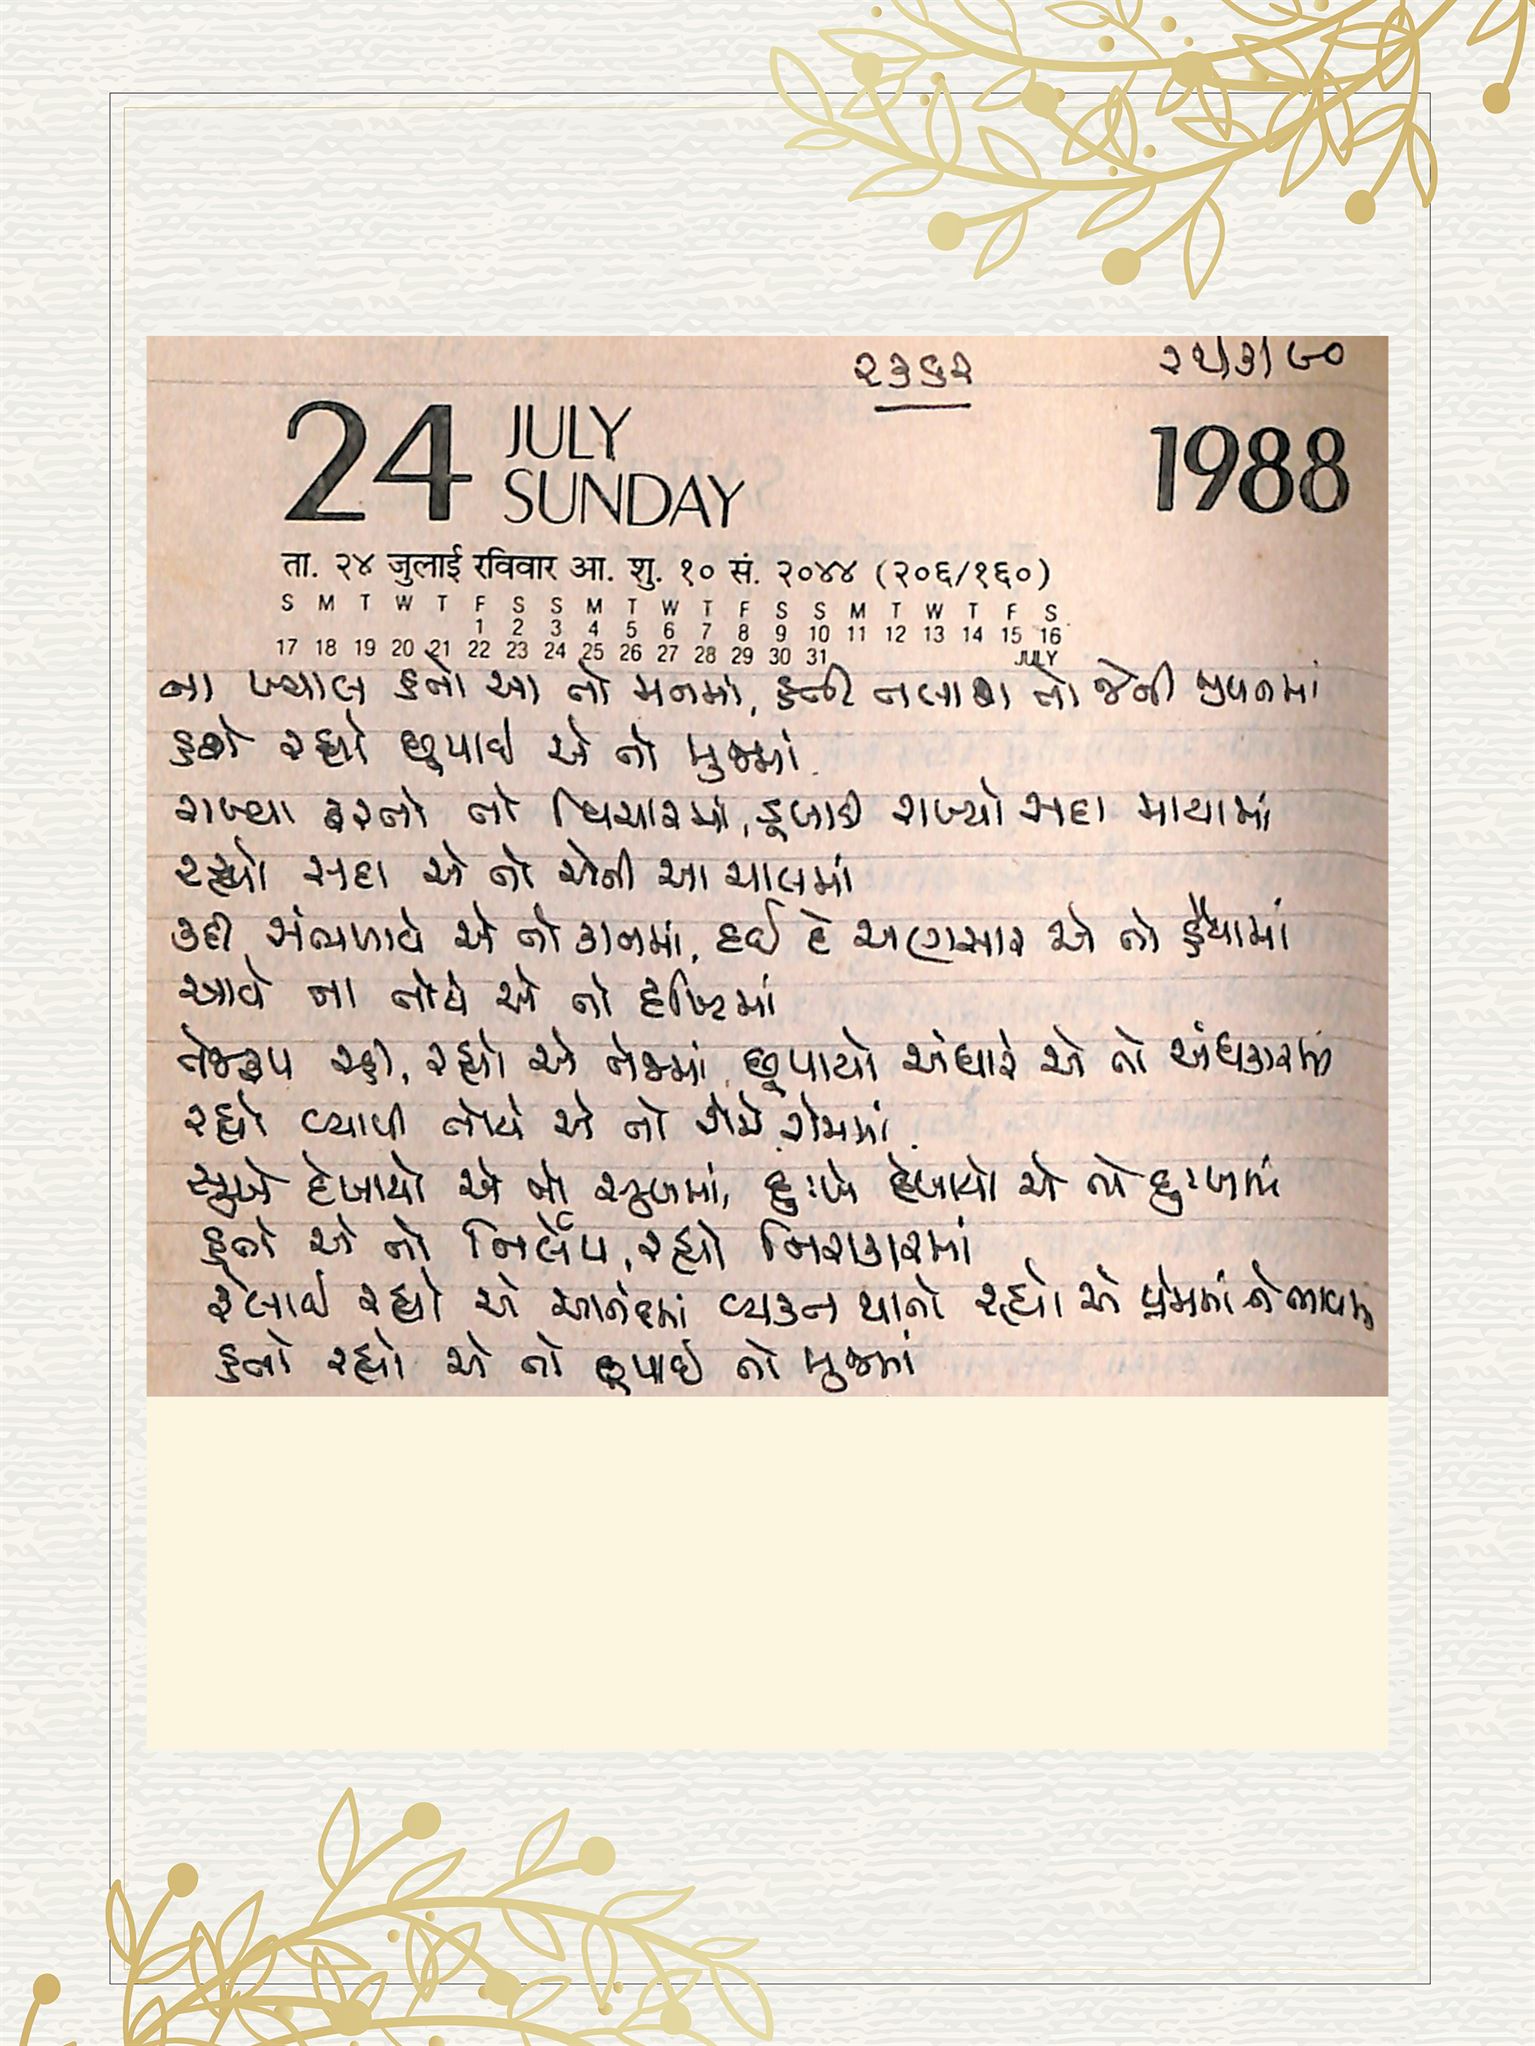 ૨૩૬૨ ૨૫/૩/૯૦
24 JULY SUNDAY 1988
ता. २४ जुलाई रविवार आ. शु. १० सं. २०४४ (२०६/१६०)
S M T W T F S S M T W T F S S M T W T F S
1 2 3 4 5 6 7 8 9 10 11 12 13 14 15 16
17 18 19 20 21 22 23 24 25 26 27 28 29 30 31 JULY
ના ખ્યાલ હતો આ તો મનમાં, હતી તલાશ તો જેની જીવનમાં
હતો રહ્યો છૂપાઈ એ તો મુજમાં
રાખ્યા ફરતો તો વિચારમાં, ડૂબાડી રાખ્યો સદા માયામાં
રહ્યો સદા એ તો એની આ ચાલમાં
કદી સંભળાવે એ તો કાનમાં, દઈ દે અણસાર એ તો હૈયામાં
આવે ના તોયે એ તો દૃષ્ટિમાં
તેજરૂપ રહી, રહ્યો એ તેજમાં, છૂપાયો અંધારે એ તો અંધકારમાં
રહ્યો વ્યાપી તોયે એ તો રોમે રોમમાં
સુખે દેખાયો એ તો સુખમાં, દુઃખે દેખાયો એ તો દુઃખમાં
હતો એ તો નિર્લેપ, રહ્યો નિરાકારમાં
રેલાઈ રહ્યો એ આનંદમાં વ્યક્ત થાતો રહ્યો એ પ્રેમમાં ને ભાવમાં
હતો રહ્યો એ તો છૂપાઈ તો મુજમાં